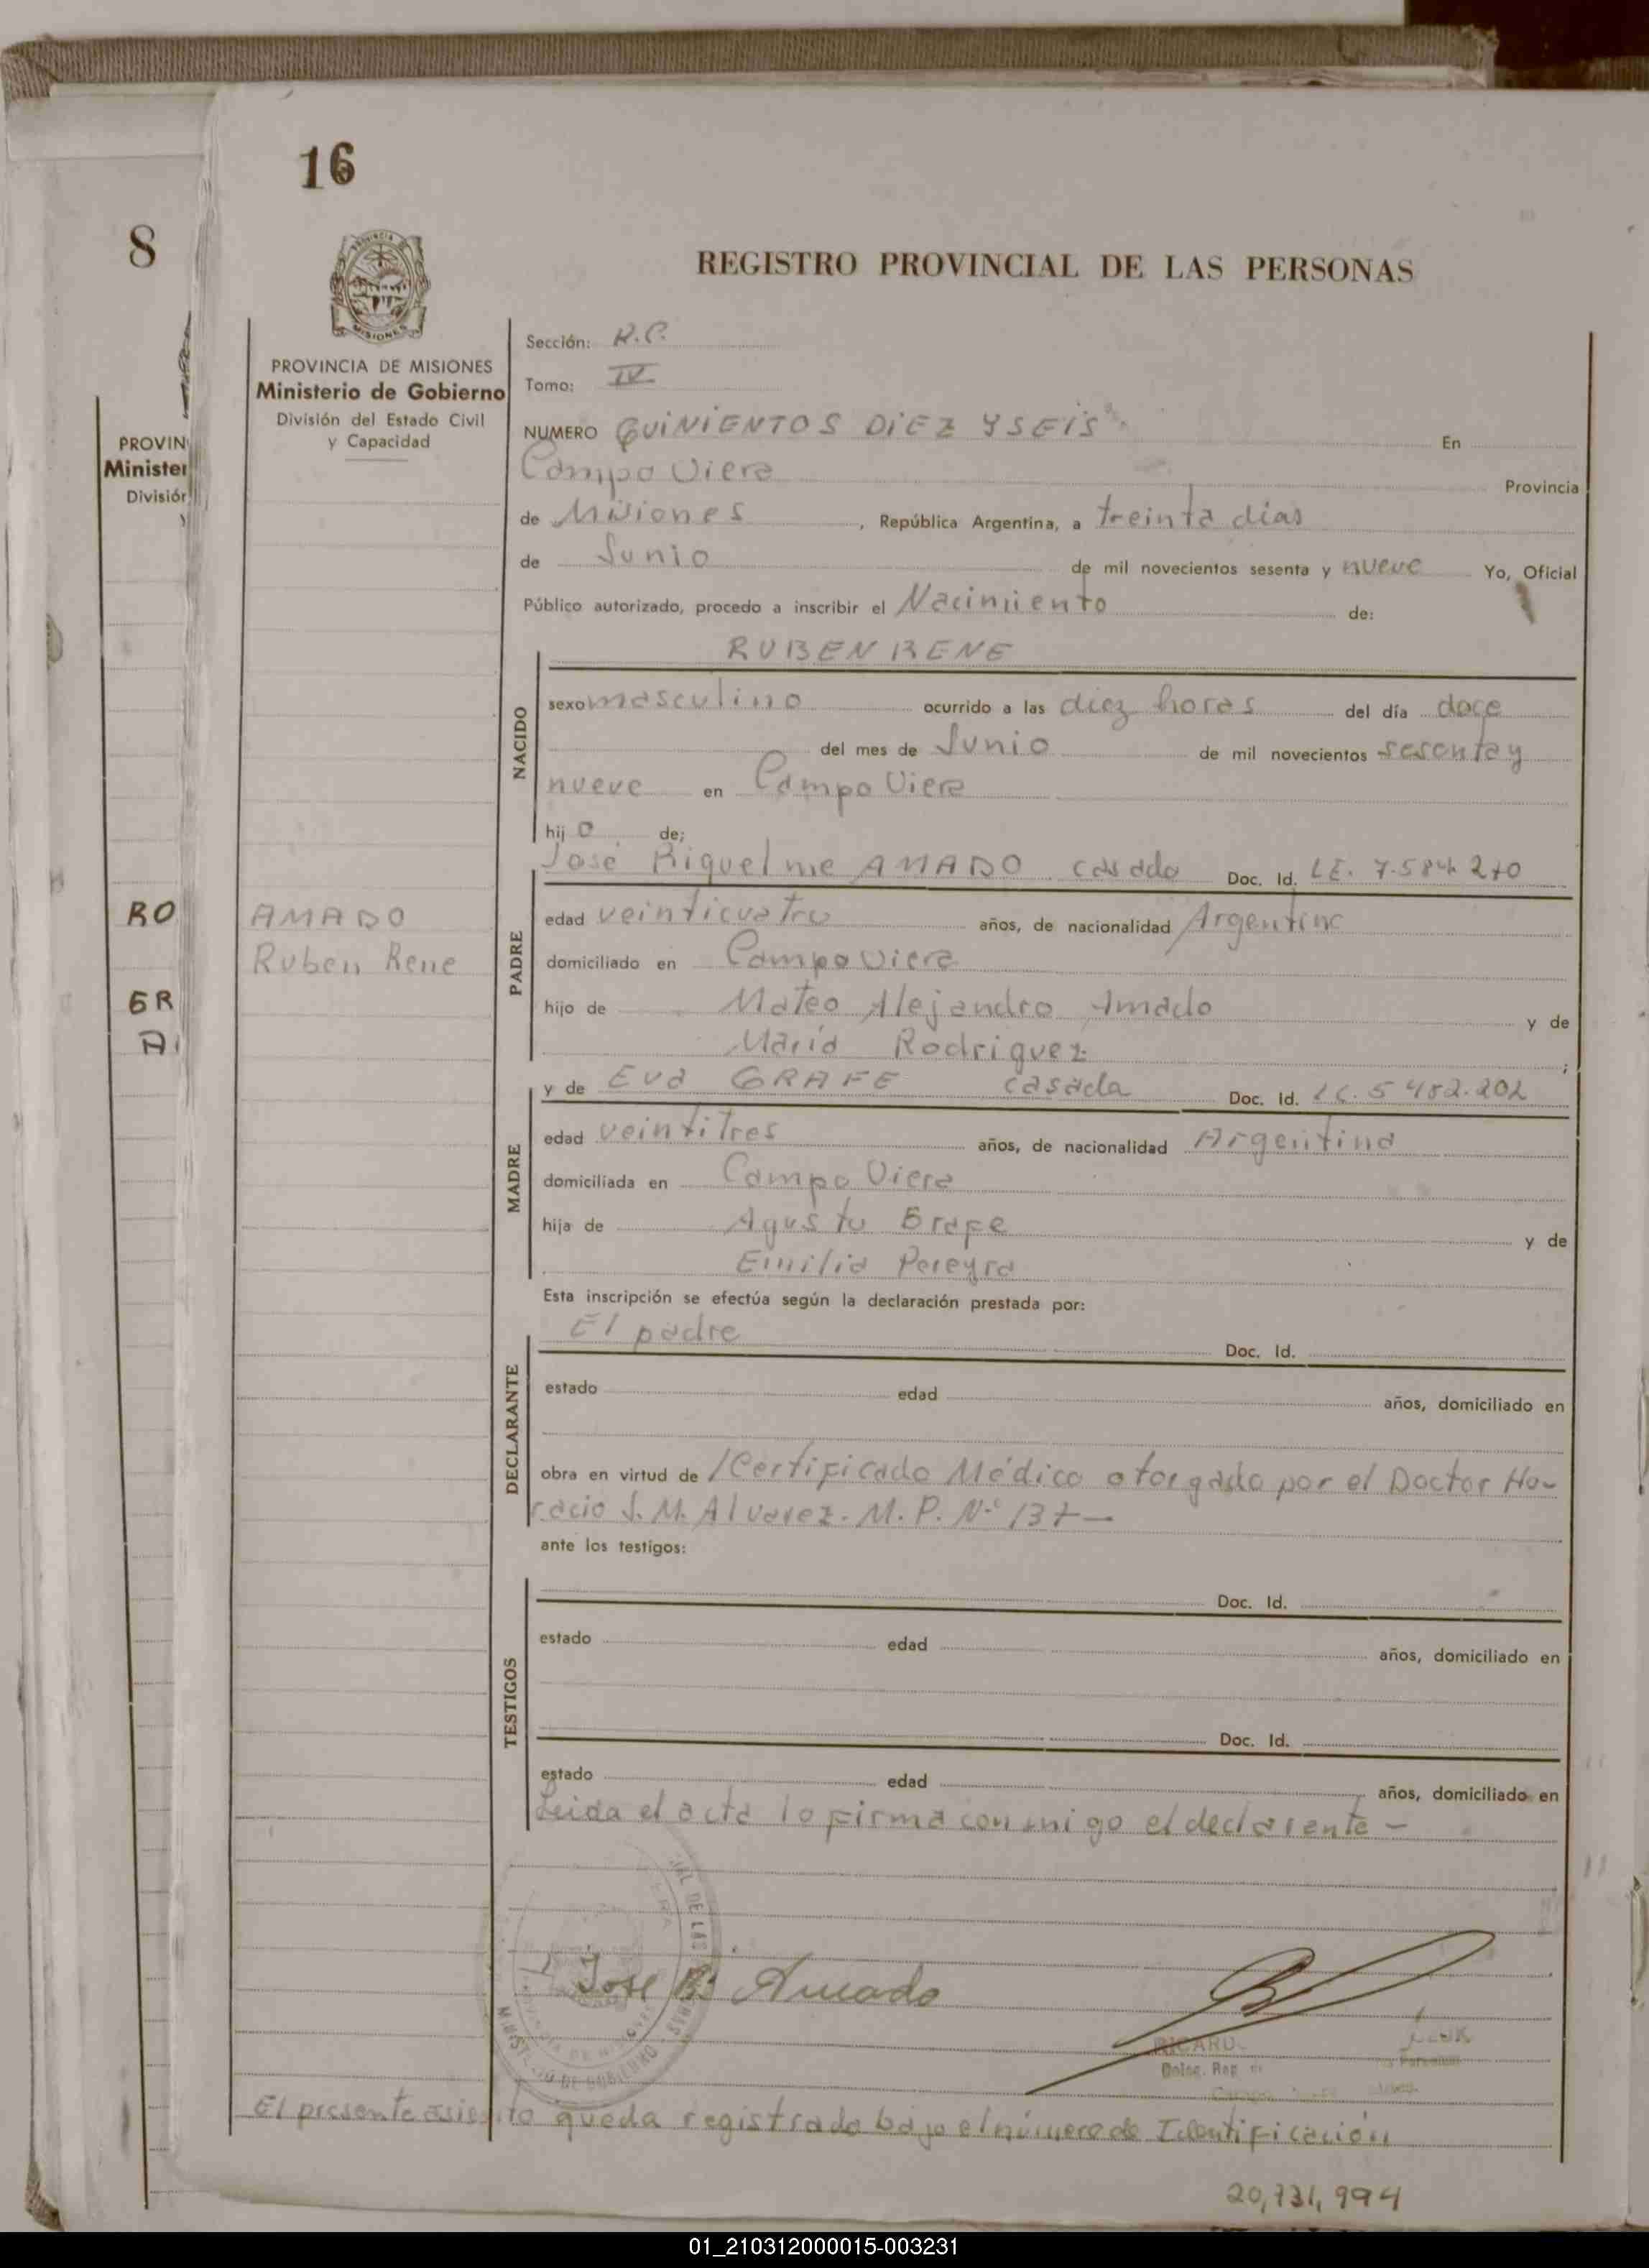 16
8
REGISTRO PROVINCIAL DE LAS PERSONAS
PROVINCIA DE
MISIONES
PROVINCIA DE MISIONES
Ministerio de Gobierno
División del Estado Civil
y Capacidad
PROVIN
Minister
División
Sección: R.C.
Tomo: IV
NUMERO QUINIENTOS DIEZ Y SEIS En
Campo Viera Provincia
de Misiones, República Argentina, a treinta dias
de Junio de mil novecientos sesenta y nueve Yo, Oficial
Público autorizado, procedo a inscribir el Nacimiento de:
RUBEN RENE
NACIDO
sexo masculino ocurrido a las diez horas del día doce
del mes de Junio de mil novecientos sesenta y
nueve en Campo Viera
hijo de;
José Riquelme AMADO casado Doc. Id. LE. 7.584.270
RO
AMADO
Ruben Rene
GR
A
PADRE
edad veinticuatro años, de nacionalidad Argentino
domiciliado en Campo Viera
hijo de Mateo Alejandro Amado y de
María Rodriguez;
y de Eva GRAFE casada Doc. Id. LC. 5.482.202
MADRE
edad veintitres años, de nacionalidad Argentina
domiciliada en Campo Viera
hija de Agusto Grafe y de
Emilia Pereyra
Esta inscripción se efectúa según la declaración prestada por:
El padre Doc. Id.
DECLARANTE
estado edad años, domiciliado en
obra en virtud de /Certificado Médico otorgado por el Doctor Ho-
racio J. M. Alvarez. M. P. Nº 137-
ante los testigos:
Doc. Id.
TESTIGOS
estado edad años, domiciliado en
Doc. Id.
estado edad años, domiciliado en
Leida el acta lo firma conmigo el declarente -
Jose R. Amado
MINIST IO DE GOBIERNO
DE LAS
RICARD
Deleg. Reg.
Campo
El presente asiento queda registrado bajo el número de Identificación
20,731,994
01_210312000015-003231